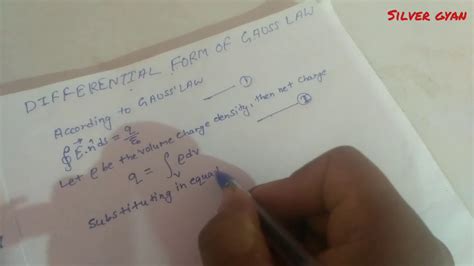 SILVER GYAN
DIFFERENTIAL FORM OF GAUSS LAW
According to GAUSS'LAW
∮ E⃗.n̂ ds = q/ε₀ ——— ①
Let ρ be the volume charge density, then net charge
q = ∫ᵥ ρdv ——— ②
Substituting in equa